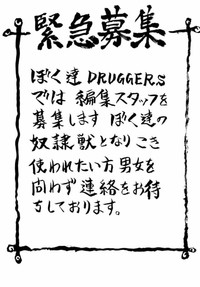 緊急募集
ぼく達 DRUGGERS
では 編集スタッフを
募集します ぼく達の
奴隷獣となりこき
使われたい方 男女を
問わず 連絡をお待
ちしております。